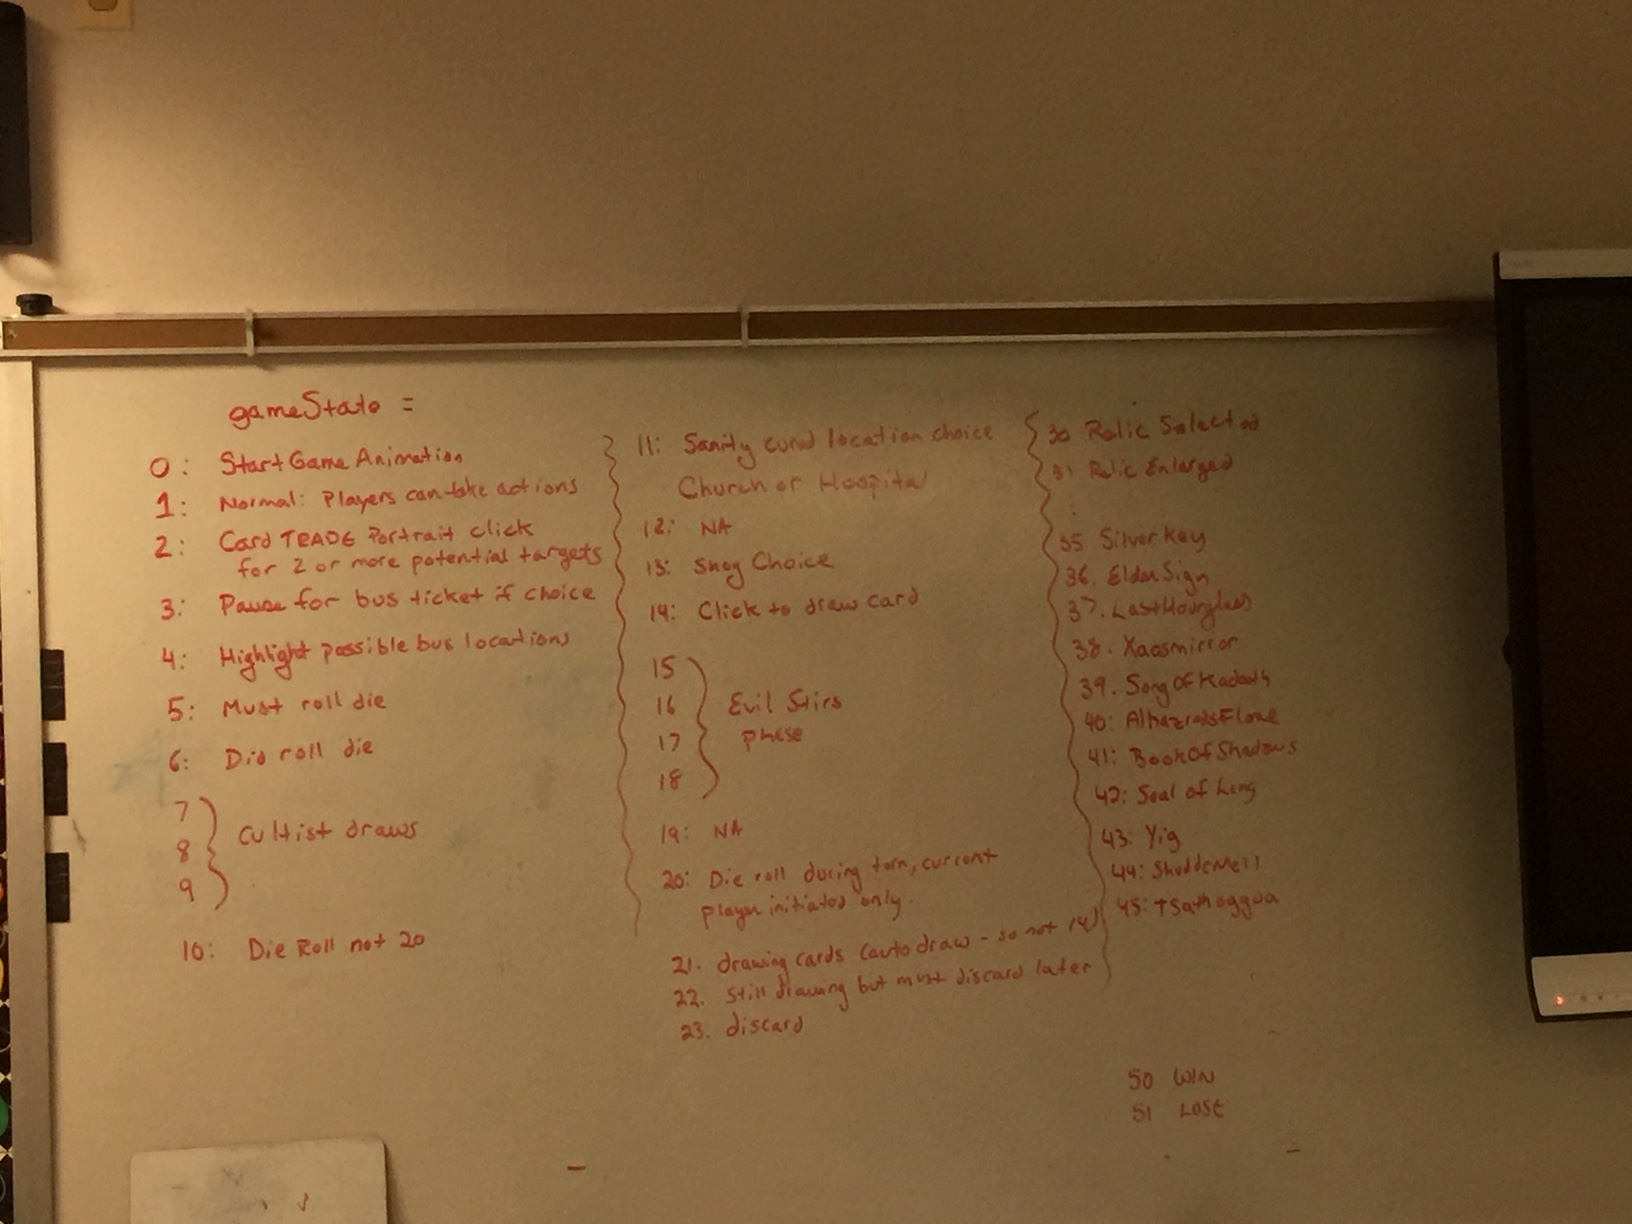 gameState =
0: Start Game Animation
1: Normal: Players can take actions
2: Card TRADE Portrait click
for 2 or more potential targets
3: Pause for bus ticket if choice
4: Highlight possible bus locations
5: Must roll die
6: Did roll die
7
8
9
Cultist draws
10: Die Roll not 20
11: Sanity cured location choice
Church or Hospital
12: NA
13: Shog Choice
14: Click to draw card
15
16
17
18
Evil Stirs
phase
19: NA
20: Die roll during turn, current
player initiated only.
21. drawing cards (autodraw - so not 14)
22. Still drawing but must discard later
23. discard
30 Relic Selected
31 Relic Enlarged
:
35 Silver Key
36. Elder Sign
37. LastHourglass
38. Xaosmirror
39. Song Of Kadath
40: AlhazredsFlame
41: BookOfShadows
42: Seal of Leng
43: Yig
44: ShuddeMell
45: Tsathoggua
50 WIN
51 LOSE